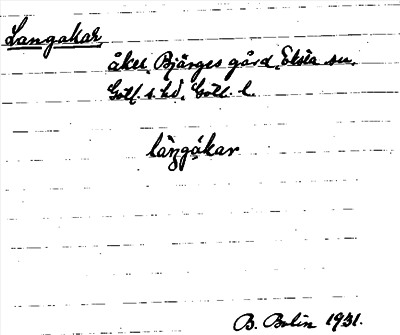 Langakar,
åker, Bjärges gård, Eksta sn.
Gotl. s. hd, Gotl. l.
làngákar
B. Bolin 1931.